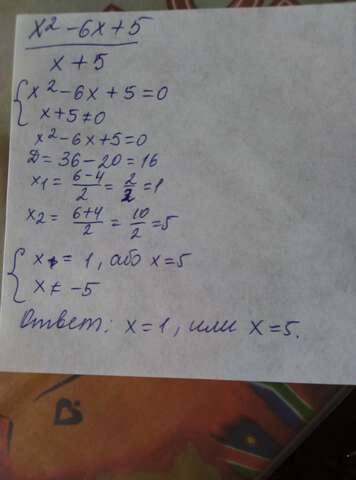 x² - 6x + 5
x + 5
x² - 6x + 5 = 0
x + 5 ≠ 0
x² - 6x + 5 = 0
D = 36 - 20 = 16
x₁ = (6-4)/2 = 2/2 = 1
x₂ = (6+4)/2 = 10/2 = 5
x = 1, або x = 5
x ≠ -5
Ответ: x = 1, или x = 5.